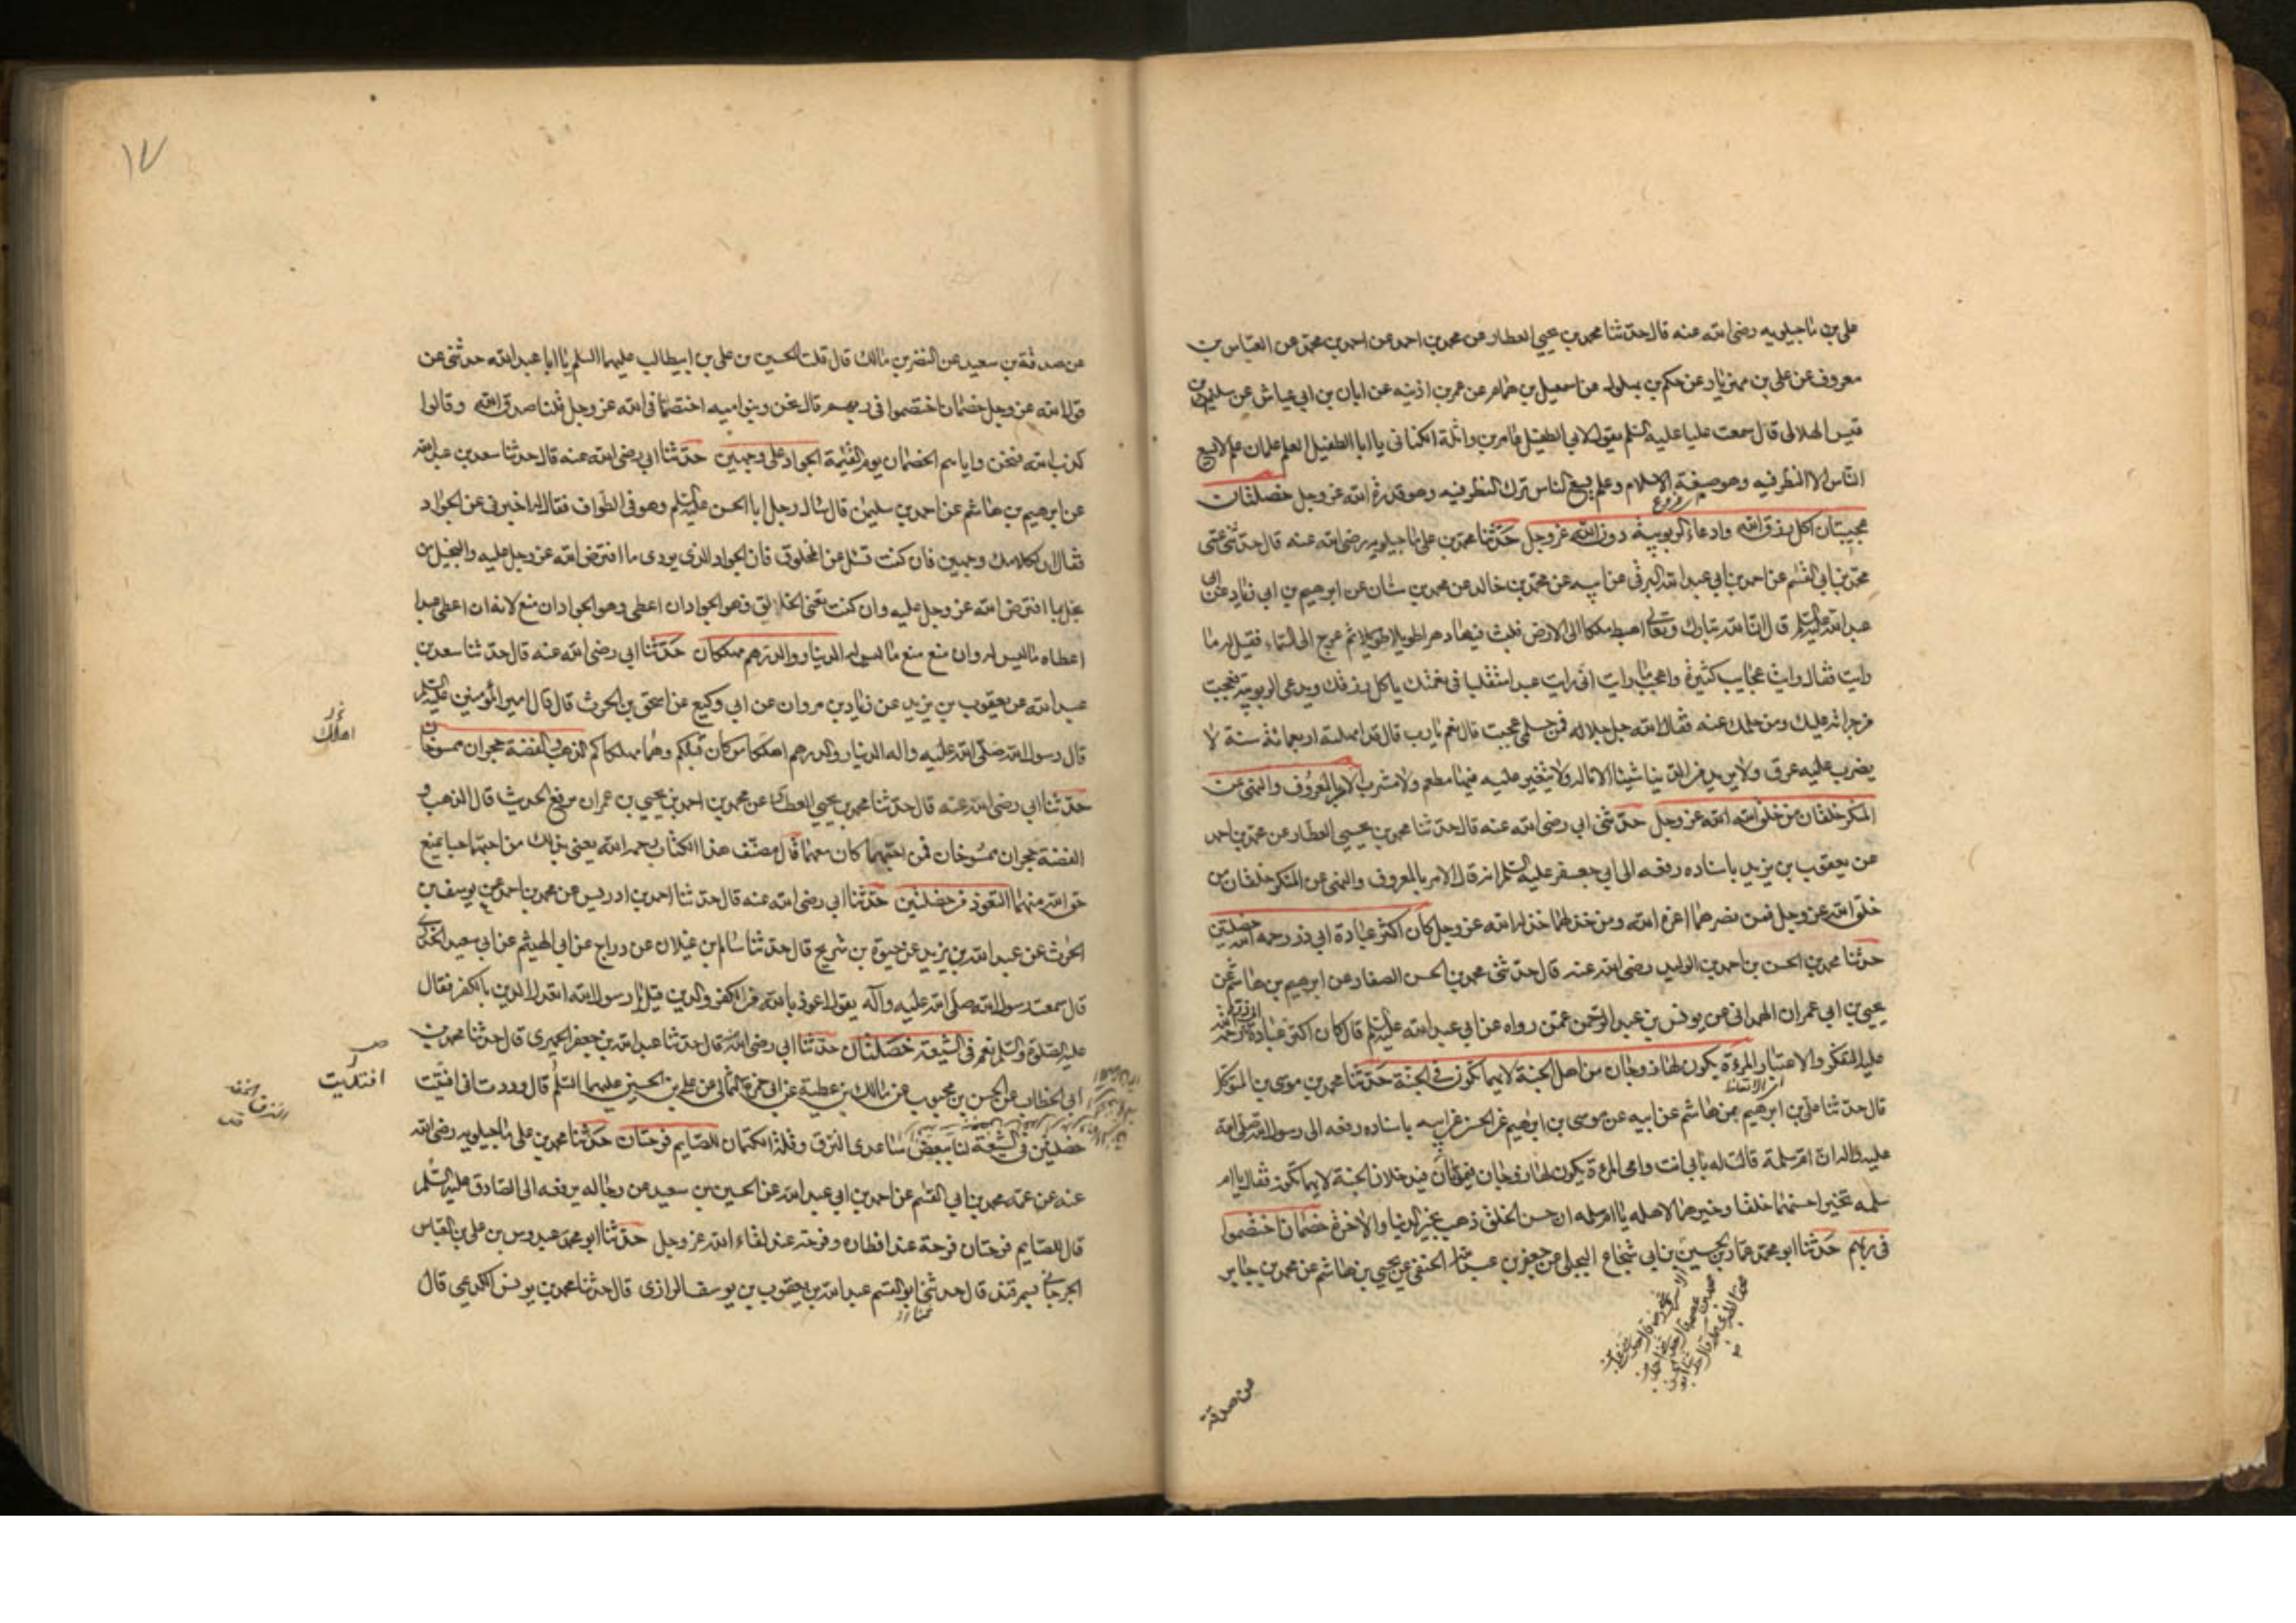 علي بن ماجيلويه رضي الله عنه قال حدثنا محمد بن يحيى العطار عن محمد بن احمد عن احمد بن محمد عن العباس بن
معروف عن علي بن مهزيار عن حكم بن بهلول عن اسمعيل بن همام عن عمر بن اذينه عن ابان بن ابي عياش عن سليم بن
قيس الهلالي قال سمعت عليا عليه السلم يقول لابي الطفيل عامر بن واثلة الكناني يا ابا الطفيل العلم علمان علم لا يسع
الناس الا النظر فيه وهو صبغة الاسلام وعلم يسع الناس ترك النظر فيه وهو قدرة الله عز وجل خصلتان
عجيبتان اكل رزق الله وادعاء الربوبية دون الله عز وجل حدثنا محمد بن علي ماجيلويه رضي الله عنه قال حدثني عمي
محمد بن ابي القسم عن احمد بن ابي عبد الله البرقي عن ابيه عن محمد بن خالد عن محمد بن سنان عن ابرهيم بن ابي زياد عن ابي
عبد الله عليه السلم قال ان الله تبارك وتعالى اهبط ملكا الى الارض فلبث فيها دهرا طويلا ثم عرج الى السماء فقيل له ما
رايت فقال رايت عجايب كثيرة واعجب ما رايت اني رايت عبدا متقلبا في نعمتك ياكل رزقك ويدعي الربوبية فعجبت
من جراته عليك ومن حلمك عنه فقال الله جل جلاله فمن حلمي عجبت قال نعم يا رب قال قد امهلته اربعمائة سنة لا
يضرب عليه عرق ولا يريد من الدنيا شيئا الا ناله ولا يتغير عليه فيها مطعم ولا مشرب الامر بالمعروف والنهي عن
المنكر خلقان من خلق الله عز وجل حدثني ابي رضي الله عنه قال حدثنا محمد بن يحيى العطار عن محمد بن احمد
عن يعقوب بن يزيد باسناده رفعه الى ابي جعفر عليه السلم انه قال الامر بالمعروف والنهي عن المنكر خلقان من
خلق الله عز وجل فمن نصرهما اعزه الله ومن خذلهما خذله الله عز وجل كان اكثر عبادة ابي ذر رحمه الله خصلتين
حدثنا محمد بن الحسن بن احمد بن الوليد رضي الله عنه قال حدثني محمد بن الحسن الصفار عن ابرهيم بن هاشم عن
يحيى بن ابي عمران الهمداني عن يونس بن عبد الرحمن عمن رواه عن ابي عبد الله عليه السلم قال كان اكثر عبادة ابي ذر رحمة الله
عليه التفكر والاعتبار المرءة يكون لها زوجان من اهل الجنة لايهما تكون في الجنة حدثنا محمد بن موسى بن المتوكل
قال حدثنا علي بن ابرهيم بن هاشم عن ابيه عن موسى بن ابرهيم عن الحسن عن ابيه باسناده رفعه الى رسول الله صلى الله
عليه واله ان ام سلمة قالت له بابي انت وامي المرءة يكون لها زوجان فيموتان فيدخلان الجنة لايهما تكون فقال يا ام
سلمه تخير احسنهما خلقا وخيرهما لاهله يا ام سلمه ان حسن الخلق ذهب بخير الدنيا والاخرة خصمان اختصموا
في ربهم حدثنا ابو محمد عمار بن الحسين بن ابي شجاع البجلي عن جعفر بن عبد الله الحنفي عن يحيى بن هاشم عن محمد بن جابر
عن صدقة
١٧
عن صدقة بن سعيد عن النضر بن مالك قال قلت للحسين بن علي بن ابيطالب عليهما السلم يا ابا عبد الله حدثني عن
قول الله عز وجل خصمان اختصموا في ربهم قال نحن وبنو اميه اختصمنا في الله عز وجل قلنا صدق الله وقالوا
كذب الله فنحن واياهم الخصمان يوم القيمة الجواد على وجهين حدثنا ابي رضي الله عنه قال حدثنا سعد بن عبد الله
عن ابرهيم بن هاشم عن احمد بن سليمن قال سال رجل ابا الحسن عليه السلم وهو في الطواف فقال له اخبرني عن الجواد
فقال ان لكلامك وجهين فان كنت تسئل عن المخلوق فان الجواد الذي يودى ما افترض الله عز وجل عليه والبخيل من
بخل بما افترض الله عز وجل عليه وان كنت تعني الخالق فهو الجواد ان اعطى وهو الجواد ان منع لانه ان اعطى عبدا
اعطاه ما ليس له وان منع منع ما ليس له الدينار والدرهم مهلكان حدثنا ابي رضي الله عنه قال حدثنا سعد بن
عبد الله عن يعقوب بن يزيد عن زياد بن مروان عن ابي وكيع عن اسحق بن الحرث قال قال امير المؤمنين عليه السلم
قال رسول الله صلى الله عليه واله الدينار والدرهم اهلكا من كان قبلكم وهما مهلكاكم الذهب والفضة حجران ممسوخان
حدثنا ابي رضي الله عنه قال حدثنا محمد بن يحيى العطار عن محمد بن احمد بن يحيى بن عمران رفع الحديث قال الذهب و
الفضة حجران ممسوخان فمن احبهما كان معهما قال مصنف هذا الكتاب رحمه الله يعني بذلك من احبهما حبا يمنع
حق الله منهما التعوذ من خصلتين حدثنا ابي رضي الله عنه قال حدثنا احمد بن ادريس عن محمد بن احمد عن يوسف بن
الحرث عن عبد الله بن يزيد عن حيوة بن شريح قال حدثنا سالم بن غيلان عن دراج عن ابي الهيثم عن ابي سعيد الخدري
قال سمعت رسول الله صلى الله عليه وآله يقول اعوذ بالله من الكفر والدين قيل يا رسول الله اتعدل الدين بالكفر فقال
عليه الصلوة والسلم نعم في الشيعة خصلتان حدثنا ابي رضي الله عنه قال حدثنا عبد الله بن جعفر الحميري قال حدثنا محمد بن
ابي الخطاب عن الحسن بن محبوب عن مالك بن عطية عن ابي حمزة الثمالي عن علي بن الحسين عليهما السلم قال وددت اني افتديت
خصلتين في الشيعة لنا ببعض ساعدي النزق وقلة الكتمان للصايم فرحتان حدثنا محمد بن علي ماجيلويه رضي الله
عنه عن عمه محمد بن ابي القسم عن احمد بن ابي عبد الله عن الحسين بن سعيد عن رجاله يرفعه الى الصادق عليه السلم
قال للصايم فرحتان فرحة عند افطاره وفرحة عند لقاء الله عز وجل حدثنا ابو محمد عبدوس بن علي بن العباس
الجرجاني بسمرقند قال حدثني ابو القسم عبد الله بن يعقوب بن يوسف الرازى قال حدثنا محمد بن يونس الكديمي قال
اهلك
افتديت